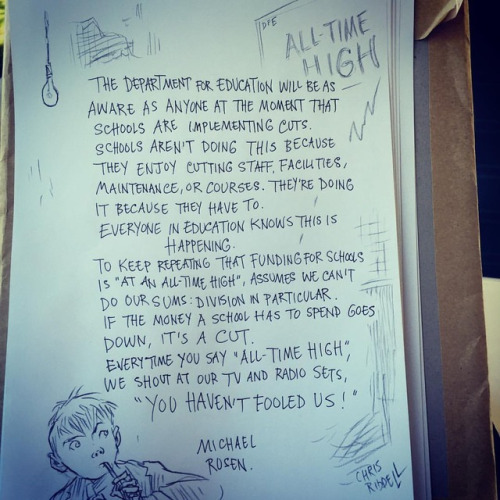 DFE
ALL-TIME
HIGH
THE DEPARTMENT FOR EDUCATION WILL BE AS
AWARE AS ANYONE AT THE MOMENT THAT
SCHOOLS ARE IMPLEMENTING CUTS.
SCHOOLS AREN'T DOING THIS BECAUSE
THEY ENJOY CUTTING STAFF, FACILITIES,
MAINTENANCE, OR COURSES. THEY'RE DOING
IT BECAUSE THEY HAVE TO.
EVERYONE IN EDUCATION KNOWS THIS IS
HAPPENING.
TO KEEP REPEATING THAT FUNDING FOR SCHOOLS
IS "AT AN ALL-TIME HIGH", ASSUMES WE CAN'T
DO OUR SUMS: DIVISION IN PARTICULAR.
IF THE MONEY A SCHOOL HAS TO SPEND GOES
DOWN, IT'S A CUT.
EVERY TIME YOU SAY "ALL-TIME HIGH",
WE SHOUT AT OUR TV AND RADIO SETS,
"YOU HAVEN'T FOOLED US!"
MICHAEL
ROSEN.
CHRIS
RIDDELL